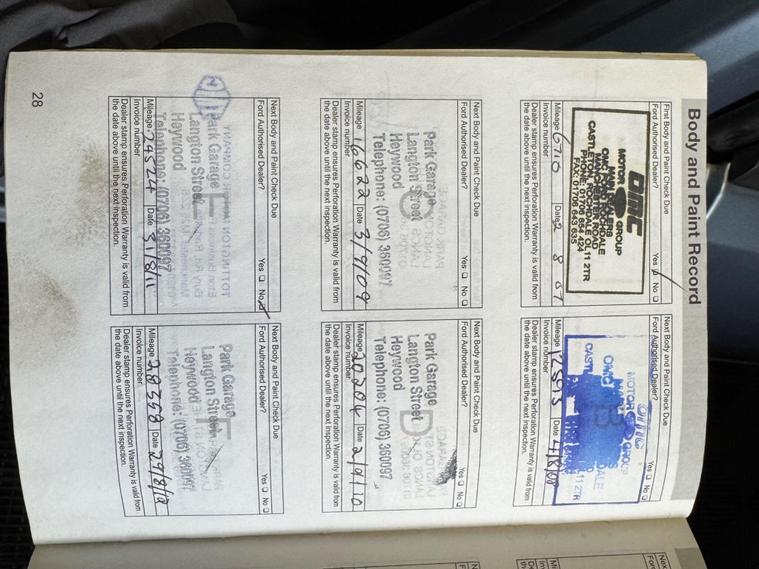 Body and Paint Record
First Body and Paint Check Due
Ford Authorised Dealer? Yes No
OMC
MOTOR GROUP
MAIN DEALERS
MANCHESTER ROAD
CASTLETON, ROCHDALE OL11 2TR
PHONE: 01706 654 424
FAX: 01706 645 635
Mileage 6710 Date 2 8 07
Invoice number
Dealer stamp ensures Perforation Warranty is valid from
the date above until the next inspection.
Next Body and Paint Check Due
Ford Authorised Dealer? Yes No
OMC
MOTOR GROUP
11 2TR
Mileage Date 4/8/08
Invoice number
Dealer stamp ensures Perforation Warranty is valid from
the date above until the next inspection.
Next Body and Paint Check Due
Ford Authorised Dealer? Yes No
Park Garage
Langton Street
Heywood
Telephone: (0706) 360097
Mileage 16622 Date 3/9/09
Invoice number
Dealer stamp ensures Perforation Warranty is valid from
the date above until the next inspection.
Next Body and Paint Check Due
Ford Authorised Dealer? Yes No
Park Garage
Langton Street
Heywood
Telephone: (0706) 360097
Mileage 20204 Date 2/9/10
Invoice number
Dealer stamp ensures Perforation Warranty is valid from
the date above until the next inspection.
Next Body and Paint Check Due
Ford Authorised Dealer? Yes No
Park Garage
Langton Street
Heywood
Telephone: (0706) 360097
Mileage 24524 Date 5/8/11
Invoice number
Dealer stamp ensures Perforation Warranty is valid from
the date above until the next inspection.
Next Body and Paint Check Due
Ford Authorised Dealer? Yes No
Park Garage
Langton Street
Heywood
Telephone: (0706) 360097
Mileage 28358 Date 29/8/12
Invoice number
Dealer stamp ensures Perforation Warranty is valid from
the date above until the next inspection.
28